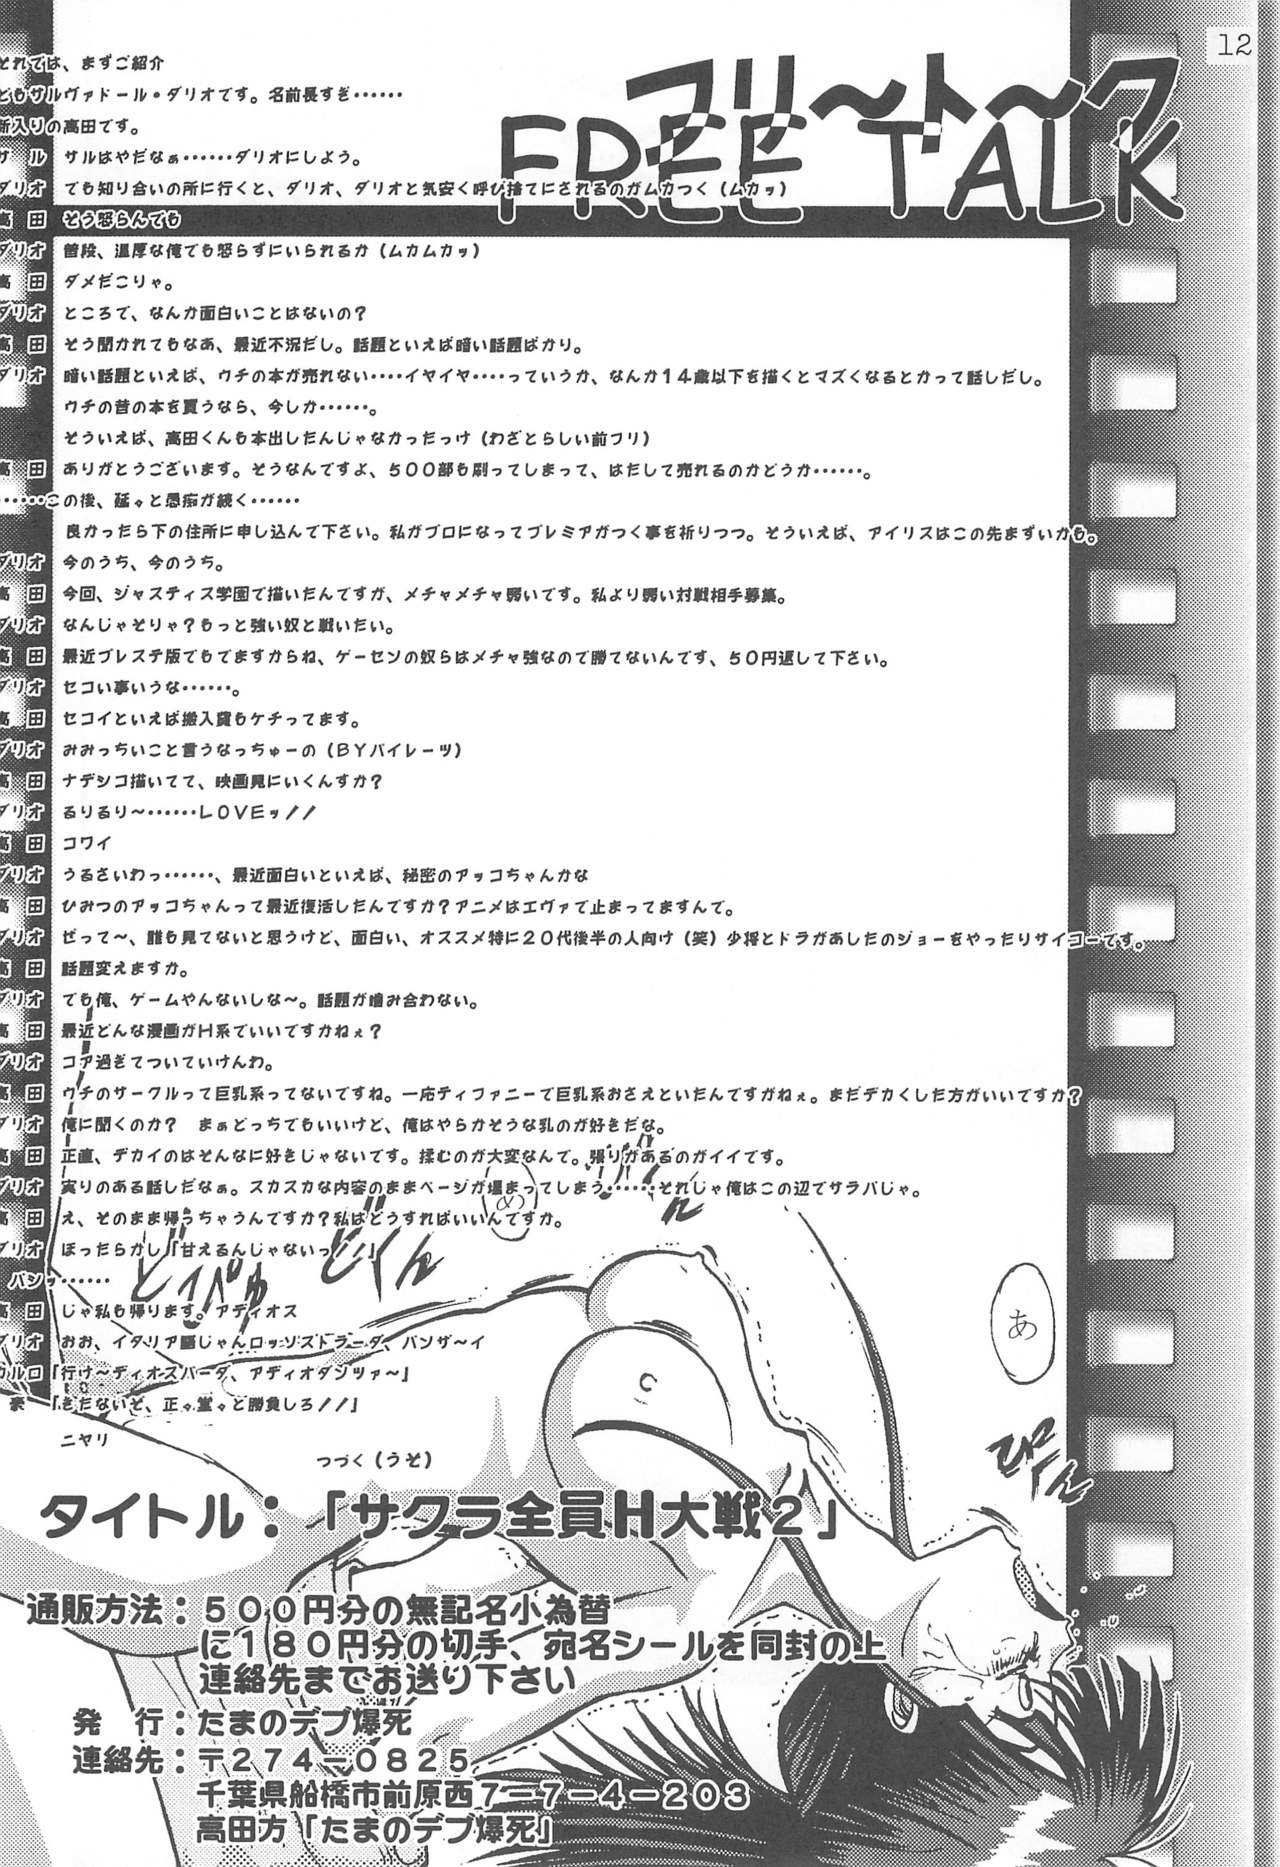 12
フリ〜ト〜ク
FREE TALK
それでは、まずご紹介
ともサルヴァドール・ダリオです。名前長すぎ……
新入りの高田です。
サル　サルはやだなぁ……ダリオにしよう。
ダリオ　でも知り合いの所に行くと、ダリオ、ダリオと気安く呼び捨てにされるのがムカつく（ムカッ）
高田　そう怒らんでも
ダリオ　普段、温厚な俺でも怒らずにいられるか（ムカムカッ）
高田　ダメだこりゃ。
ダリオ　ところで、なんか面白いことはないの？
高田　そう聞かれてもなあ、最近不況だし。話題といえば暗い話題ばかり。
ダリオ　暗い話題といえば、ウチの本が売れない‥‥イヤイヤ‥‥っていうか、なんか１４歳以下を描くとマズくなるとかって話しだし。
ウチの昔の本を買うなら、今しか……。
そういえば、高田くんも本出したんじゃなかったっけ（わざとらしい前フリ）
高田　ありがとうございます。そうなんですよ、５００部も刷ってしまって、はだして売れるのかどうか……。
……この後、延々と愚痴が続く……
良かったら下の住所に申し込んで下さい。私がプロになってプレミアがつく事を祈りつつ。そういえば、アイリスはこの先まずいかも。
ダリオ　今のうち、今のうち。
高田　今回、ジャスティス学園で描いたんですが、メチャメチャ弱いです。私より弱い対戦相手募集。
ダリオ　なんじゃそりゃ？もっと強い奴と戦いたい。
高田　最近プレステ版でもでますからね、ゲーセンの奴らはメチャ強なので勝てないんです、５０円返して下さい。
ダリオ　セコい事いうな……。
高田　セコイといえば搬入費もケチってます。
ダリオ　みみっちいこと言うなっちゅーの（ＢＹパイレーツ）
高田　ナデシコ描いてて、映画見にいくんすか？
ダリオ　るりるり〜……ＬＯＶＥッ！！
高田　コワイ
ダリオ　うるさいわっ……、最近面白いといえば、秘密のアッコちゃんかな
高田　ひみつのアッコちゃんって最近復活したんですか？アニメはエヴァで止まってますんで。
ダリオ　ぜって〜、誰も見てないと思うけど、面白い、オススメ特に２０代後半の人向け（笑）少将とドラがあしたのジョーをやったりサイコーです。
高田　話題変えますか。
ダリオ　でも俺、ゲームやんないしな〜。話題が噛み合わない。
高田　最近どんな漫画がＨ系でいいですかねぇ？
ダリオ　コア過ぎてついていけんわ。
高田　ウチのサークルって巨乳系ってないですね。一応ティファニーで巨乳系おさえといたんですがねぇ。まだデカくした方がいいですか？
ダリオ　俺に聞くのか？　まぁどっちでもいいけど、俺はやらかそうな乳のが好きだな。
高田　正直、デカイのはそんなに好きじゃないです。揉むのが大変なんで。張りがあるのがイイです。
ダリオ　実りのある話しだなぁ。スカスカな内容のままページが埋まってしまう……それじゃ俺はこの辺でサラバじゃ。
高田　え、そのまま帰っちゃうんですか？私はどうすればいいんですか。
ダリオ　ほったらかし「甘えるんじゃないっ！」
バンッ……
高田　じゃ私も帰ります。アディオス
ダリオ　おお、イタリア語じゃんロッソストラーダ、バンザ〜イ
カルロ「行け〜ディオスパーダ、アディオダンツァ〜」
豪　「きたないぞ、正々堂々と勝負しろ！！」
ニヤリ
つづく（うそ）
あ
め
タイトル：「サクラ全員Ｈ大戦２」
通販方法：５００円分の無記名小為替
に１８０円分の切手、宛名シールを同封の上
連絡先までお送り下さい
発　行：たまのデブ爆死
連絡先：〒２７４−０８２５
千葉県船橋市前原西７−７−４−２０３
高田方「たまのデブ爆死」